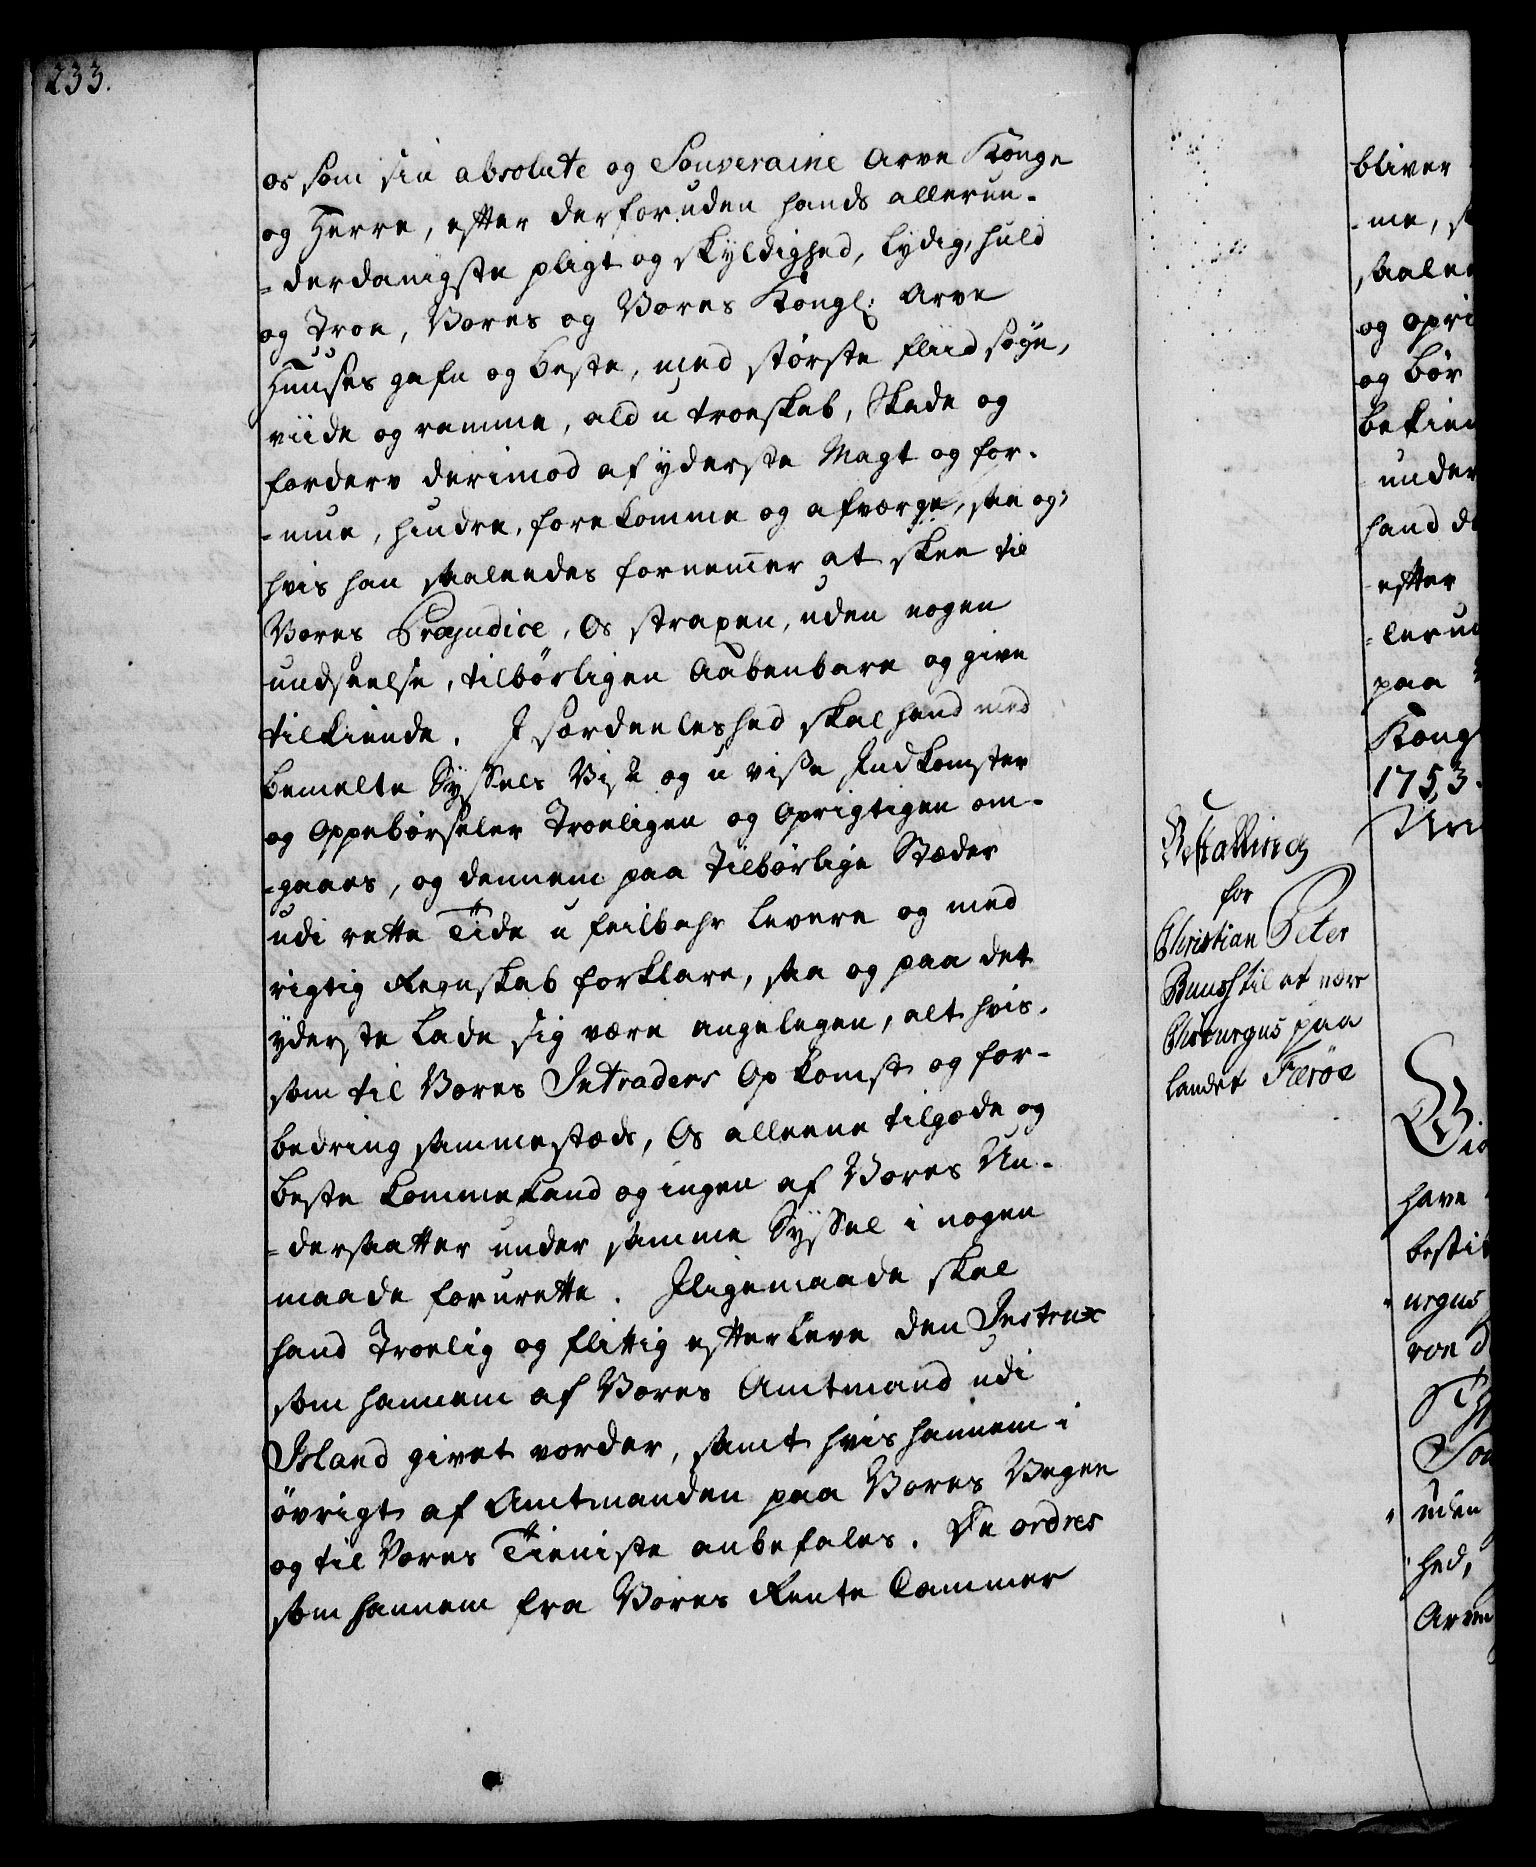 233.
os som sin absolute og Souveraine Arve Konge
og Herre, efter derforuden hands allerun-
=derdanigste pligt og skyldighed, lydig, huld
og Troe, Vores og Vores Kongl: Arve
Huuses gafn og beste, med største fliid søge,
viide og ramme, ald u troeskab, Skade og
forderv derimod af yderste Magt og for-
-mue, hindre, forekomme og afværge, saa og,
hvis han saaleedes fornemer at skee til
Vores Præjudice, Os straxen, uden nogen
undseelse, tilbørligen Aabenbare og give
tilkiende. I særdeeleshed skal hand med
bemelte Syssels Visse og u visse Indkomster
og Oppebørseler Troeligen og Oprigtigen om-
-gaaes, og dennem paa Tilbørlige Stæder
udi rette Tide u feilbahr levere og med
rigtig Regnskab forklare, saa og paa det
yderste lade sig være angelegen, alt hvis,
som til Vores Intraders Opkomst og for-
bedring sammestæds, Os alleene tilgode og
beste komme kand og ingen af Vores Un-
=dersaatter under samme Syssel i nogen
maade forurette. Iligemaade skal
hand Troelig og flittig efterleve den Instrux
som hannem af Vores Amtmand udi
Island givet vorder, samt hvis hannem i
øvrigt af Amtmanden paa Vores Vegne
og til Vores Tieniste anbefales. De ordres
som hannem fra Vores Rente Cammer
Bestalling
for
Christian Peter
til at være
Chirurgus paa
landet Færöe
bliver
-me,
saalee
og opri
og bør
bekien
under
hand
efter
=lerun
paa
Kong
1753.
have
besti
urgus
roe
Sou
uden
hed,
Arve